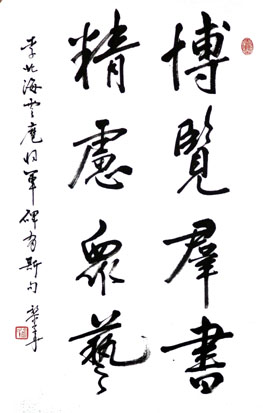 博覽羣書
精慮衆藝
李北海雲麾將軍碑有斯句